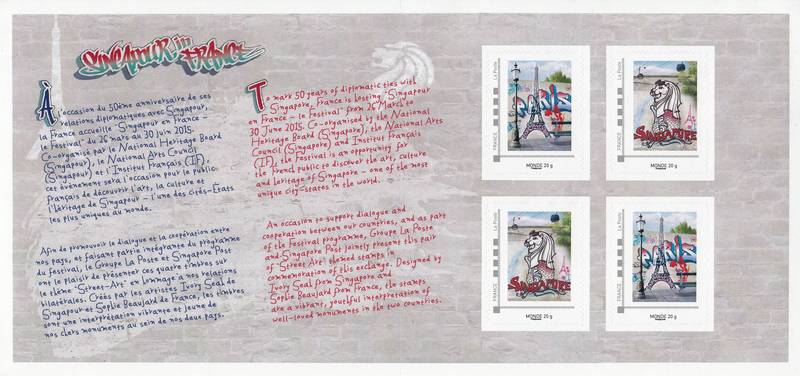 SINGAPOUR in FRANCE
À l'occasion du 50ème anniversaire de ses
relations diplomatiques avec Singapour,
la France accueille "Singapour en France –
le Festival" du 26 mars au 30 juin 2015.
Co-organisé par le National Heritage Board
(Singapour), le National Arts Council
(Singapour) et l'Institut Français (IF),
cet événement sera l'occasion pour le public
français de découvrir l'art, la culture et
l'héritage de Singapour – l'une des cités-États
les plus uniques au monde.
Afin de promouvoir le dialogue et la coopération entre
nos pays, et faisant partie intégrante du programme
du festival, le Groupe La Poste et Singapore Post
ont le plaisir de présenter ces quatre timbres sur
le thème "Street-Art" en hommage à nos relations
bilatérales. Créés par les artistes Ivory Seal de
Singapour et Sophie Beaujard de France, les timbres
sont une interprétation vibrante et jeune de
nos chers monuments au sein de nos deux pays.
To mark 50 years of diplomatic ties with
Singapore, France is hosting "Singapour
en France – le Festival" from 26 March to
30 June 2015. Co-organised by the National
Heritage Board (Singapore), the National Arts
Council (Singapore) and Institut Français
(IF), the Festival is an opportunity for
the French public to discover the art, culture
and heritage of Singapore – one of the most
unique city-states in the world.
An occasion to support dialogue and
cooperation between our countries, and as part
of the Festival programme, Groupe La Poste
and Singapore Post jointly present this pair
of "Street Art" themed stamps in
commemoration of this exchange. Designed by
Ivory Seal from Singapore and
Sophie Beaujard from France, the stamps
are a vibrant, youthful interpretation of
well-loved monuments in the two countries.
La Poste
FRANCE
PARIS
MONDE 20 g
La Poste
FRANCE
SINGAPORE
MONDE 20 g
La Poste
FRANCE
SINGAPORE
MONDE 20 g
La Poste
FRANCE
PARIS
MONDE 20 g